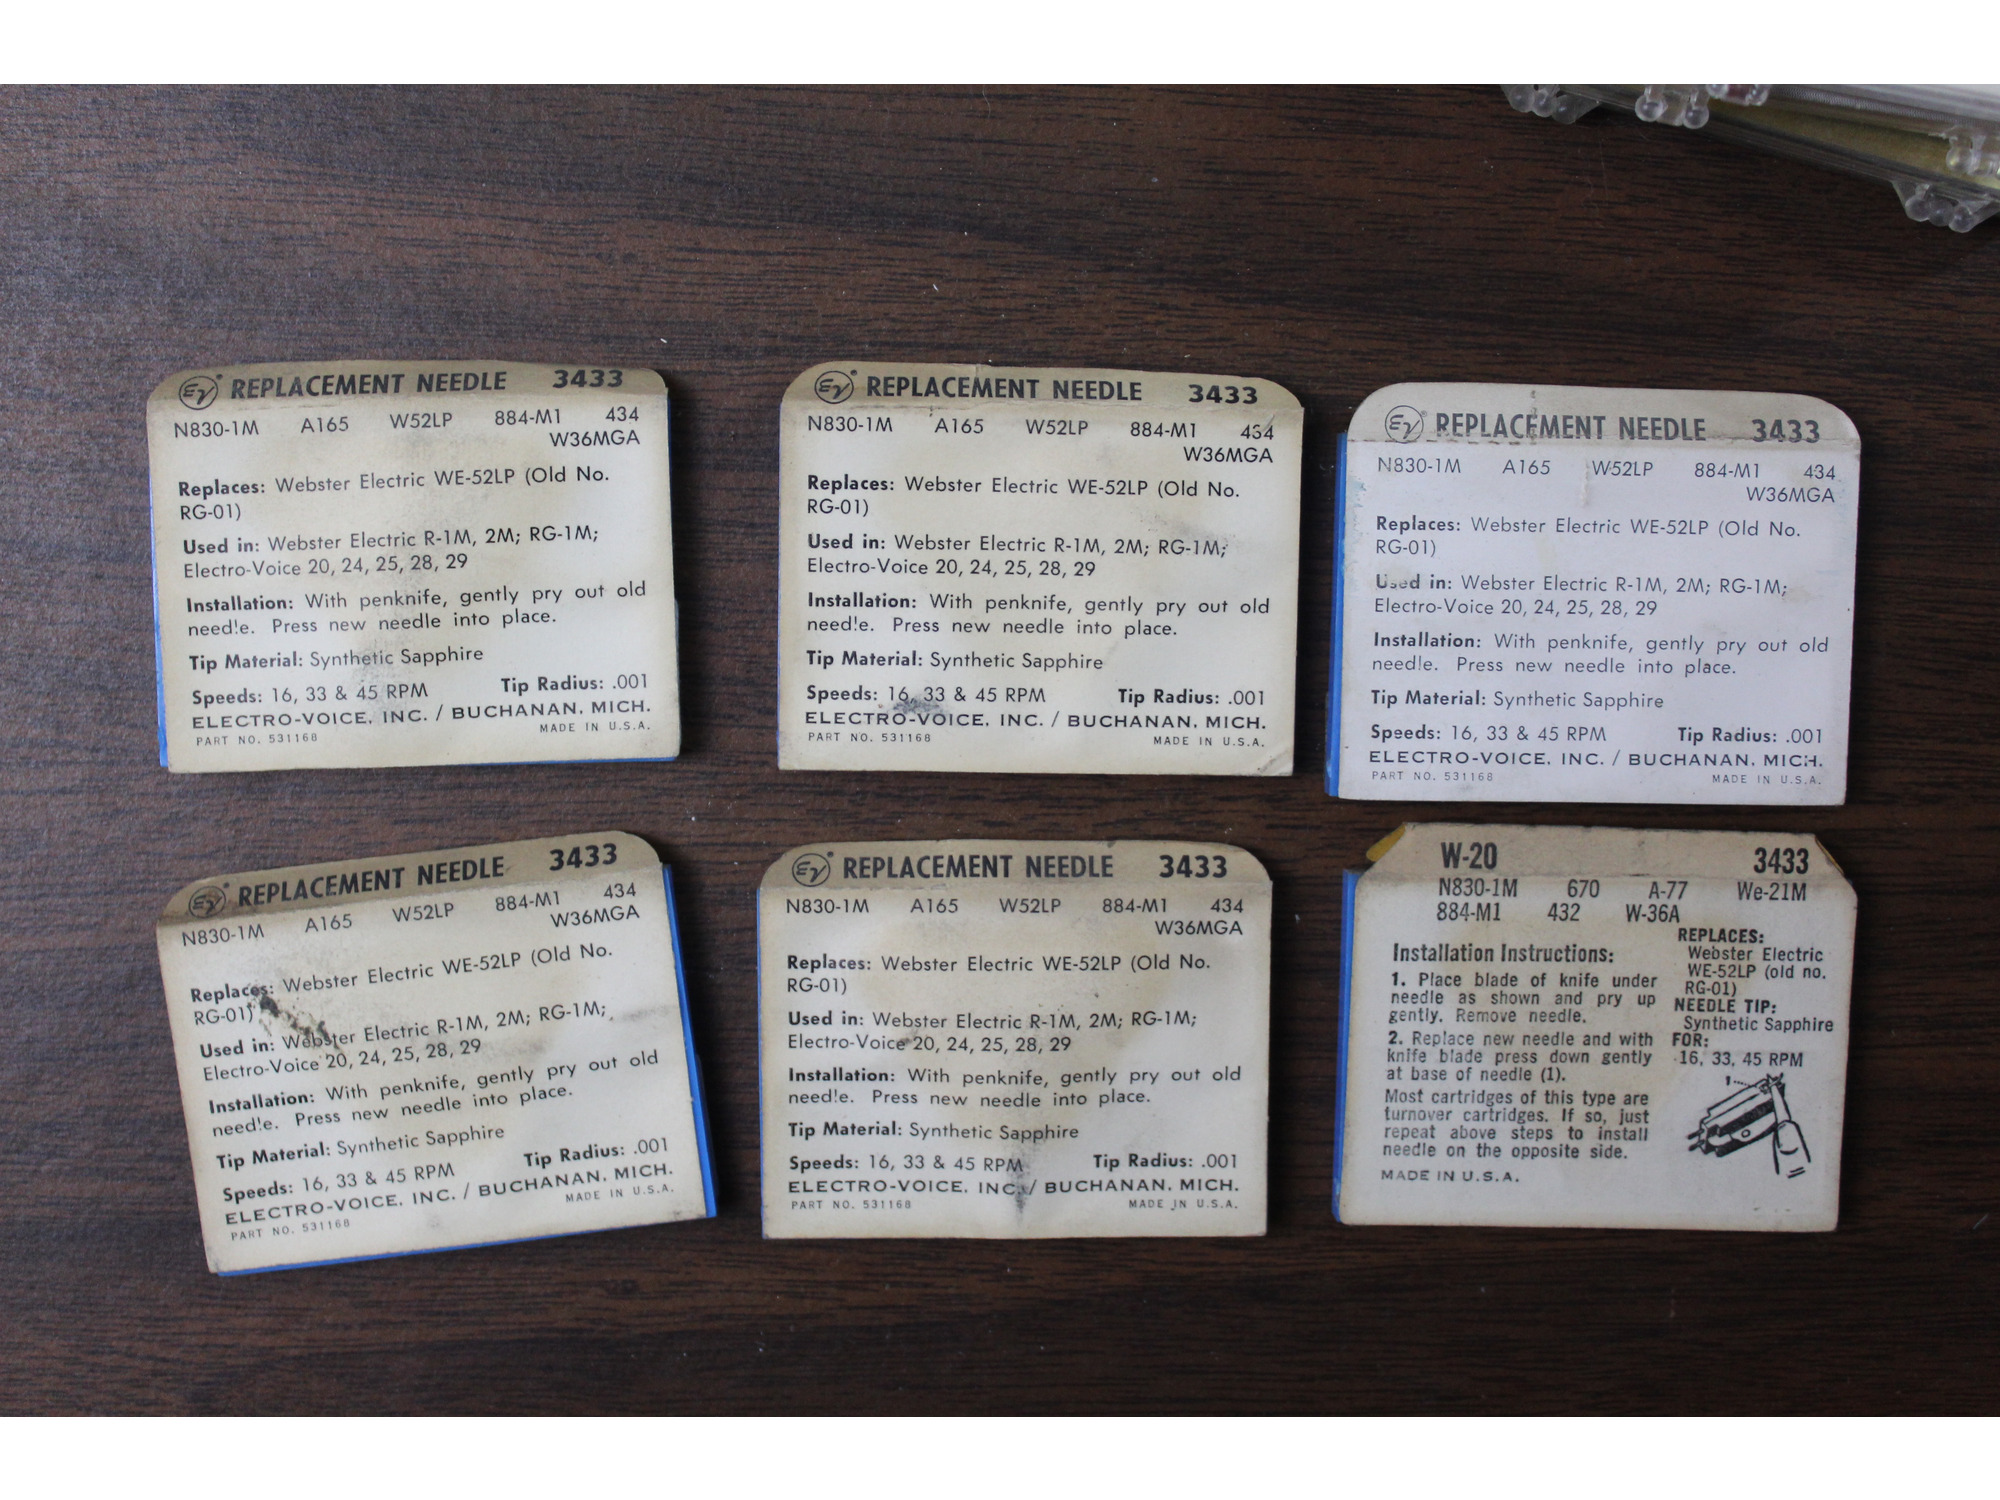 EV® REPLACEMENT NEEDLE 3433
N830-1M A165 W52LP 884-M1 434
W36MGA
Replaces: Webster Electric WE-52LP (Old No.
RG-01)
Used in: Webster Electric R-1M, 2M; RG-1M;
Electro-Voice 20, 24, 25, 28, 29
Installation: With penknife, gently pry out old
needle. Press new needle into place.
Tip Material: Synthetic Sapphire
Speeds: 16, 33 & 45 RPM Tip Radius: .001
ELECTRO-VOICE, INC. / BUCHANAN, MICH.
PART NO. 531168 MADE IN U.S.A.
EV® REPLACEMENT NEEDLE 3433
N830-1M A165 W52LP 884-M1 434
W36MGA
Replaces: Webster Electric WE-52LP (Old No.
RG-01)
Used in: Webster Electric R-1M, 2M; RG-1M;
Electro-Voice 20, 24, 25, 28, 29
Installation: With penknife, gently pry out old
needle. Press new needle into place.
Tip Material: Synthetic Sapphire
Speeds: 16, 33 & 45 RPM Tip Radius: .001
ELECTRO-VOICE, INC. / BUCHANAN, MICH.
PART NO. 531168 MADE IN U.S.A.
EV® REPLACEMENT NEEDLE 3433
N830-1M A165 W52LP 884-M1 434
W36MGA
Replaces: Webster Electric WE-52LP (Old No.
RG-01)
Used in: Webster Electric R-1M, 2M; RG-1M;
Electro-Voice 20, 24, 25, 28, 29
Installation: With penknife, gently pry out old
needle. Press new needle into place.
Tip Material: Synthetic Sapphire
Speeds: 16, 33 & 45 RPM Tip Radius: .001
ELECTRO-VOICE, INC. / BUCHANAN, MICH.
PART NO. 531168 MADE IN U.S.A.
EV® REPLACEMENT NEEDLE 3433
N830-1M A165 W52LP 884-M1 434
W36MGA
Replaces: Webster Electric WE-52LP (Old No.
RG-01)
Used in: Webster Electric R-1M, 2M; RG-1M;
Electro-Voice 20, 24, 25, 28, 29
Installation: With penknife, gently pry out old
needle. Press new needle into place.
Tip Material: Synthetic Sapphire
Speeds: 16, 33 & 45 RPM Tip Radius: .001
ELECTRO-VOICE, INC. / BUCHANAN, MICH.
PART NO. 531168 MADE IN U.S.A.
EV® REPLACEMENT NEEDLE 3433
N830-1M A165 W52LP 884-M1 434
W36MGA
Replaces: Webster Electric WE-52LP (Old No.
RG-01)
Used in: Webster Electric R-1M, 2M; RG-1M;
Electro-Voice 20, 24, 25, 28, 29
Installation: With penknife, gently pry out old
needle. Press new needle into place.
Tip Material: Synthetic Sapphire
Speeds: 16, 33 & 45 RPM Tip Radius: .001
ELECTRO-VOICE, INC. / BUCHANAN, MICH.
PART NO. 531168 MADE IN U.S.A.
W-20 3433
N830-1M 670 A-77 We-21M
884-M1 432 W-36A
Installation Instructions:
1. Place blade of knife under
needle as shown and pry up
gently. Remove needle.
2. Replace new needle and with
knife blade press down gently
at base of needle (1).
Most cartridges of this type are
turnover cartridges. If so, just
repeat above steps to install
needle on the opposite side.
MADE IN U.S.A.
REPLACES:
Webster Electric
WE-52LP (old no.
RG-01)
NEEDLE TIP:
Synthetic Sapphire
FOR:
16, 33, 45 RPM
1